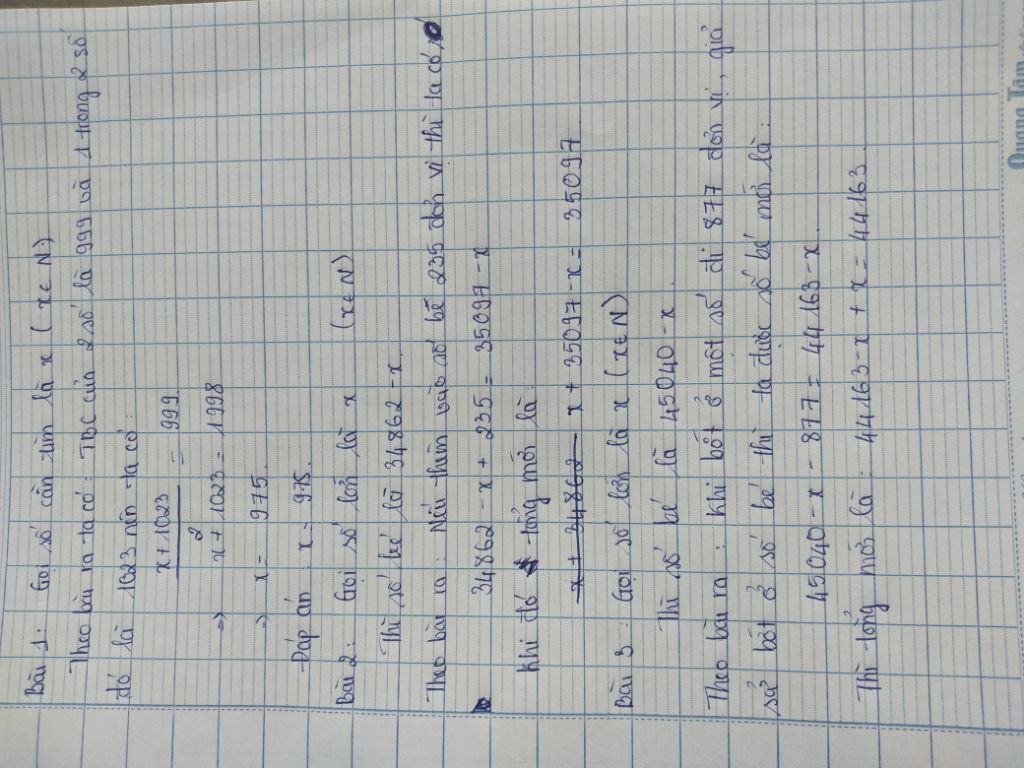 Bài 1: Gọi số cần tìm là x ( x ∈ N )
Theo bài ra ta có: TBC của 2 số là 999 và 1 trong 2 số
đó là 1023 nên ta có:
x + 1023 = 999
2
=> x + 1023 = 1998
=> x = 975.
Đáp án: x = 975.
Bài 2: Gọi số lớn là x (x ∈ N)
Thì số bé là 34862 - x.
Theo bài ra: Nếu thêm vào số bé 235 đơn vị thì ta có
34862 - x + 235 = 35097 - x
Khi đó tổng mới là:
x + 34862 x + 35097 - x = 35097
Bài 3: Gọi số lớn là x ( x ∈ N )
Thì số bé là 45040 - x.
Theo bài ra: Khi bớt ở một số đi 877 đơn vị, giả
sử bớt ở số bé thì ta được số bé mới là:
45040 - x - 877 = 44163 - x.
Thì tổng mới là: 44163 - x + x = 44163.
Quang Tâm